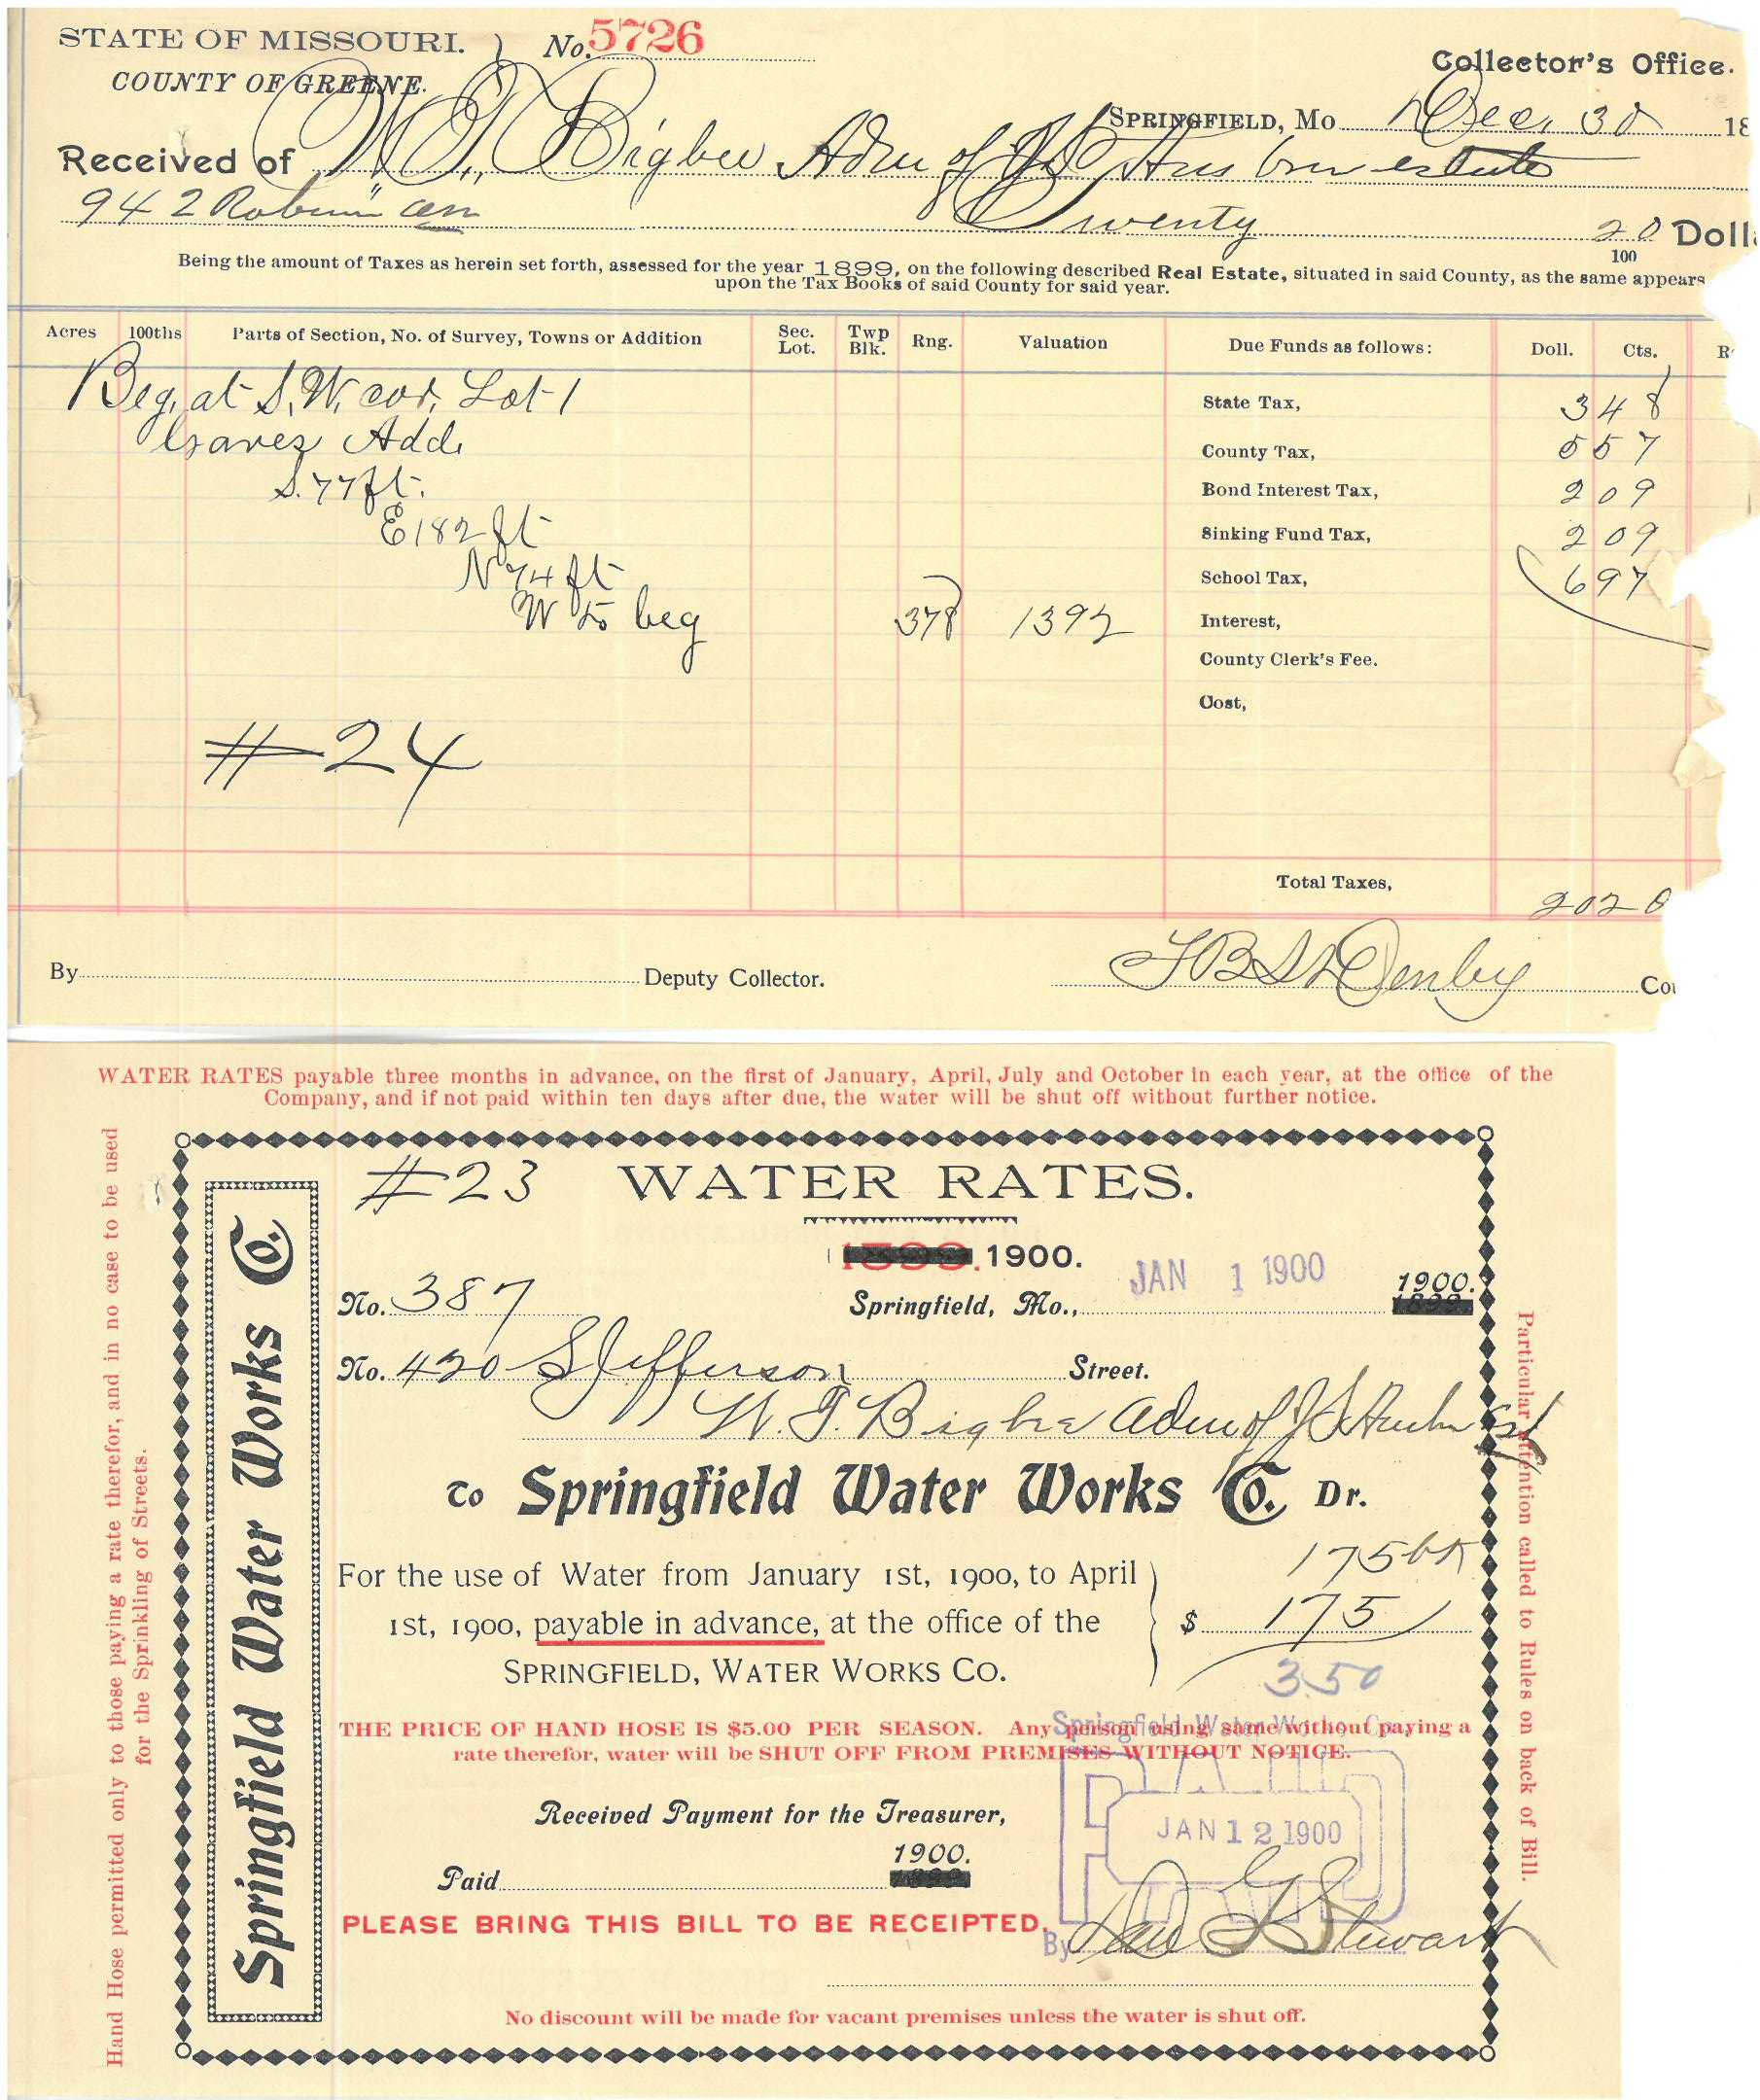 STATE OF MISSOURI. } No. 5726
COUNTY OF GREENE.
Collector's Office.
SPRINGFIELD, Mo Dec. 30 18
Received of W. T. Bigbee Adm of estate
942 Twenty 20/100 Doll
Being the amount of Taxes as herein set forth, assessed for the year 1899, on the following described Real Estate, situated in said County, as the same appears
upon the Tax Books of said County for said year.
Acres 100ths Parts of Section, No. of Survey, Towns or Addition Sec. Lot. Twp Blk. Rng. Valuation Due Funds as follows: Doll. Cts. R
Beg. at S. W. cor. Lot 1
Graves Add.
S. 77 ft.
E 182 ft
N 74 ft
W to beg
378 1392
State Tax, 3 48
County Tax, 5 57
Bond Interest Tax, 2 09
Sinking Fund Tax, 2 09
School Tax, 6 97
Interest,
County Clerk's Fee.
Cost,
#24
Total Taxes, 20 20
By Deputy Collector.
Denby Co
WATER RATES payable three months in advance, on the first of January, April, July and October in each year, at the office of the
Company, and if not paid within ten days after due, the water will be shut off without further notice.
Hand Hose permitted only to those paying a rate therefor, and in no case to be used
for the Sprinkling of Streets.
Springfield Water Works Co.
#23 WATER RATES.
1899. 1900.
No. 387 Springfield, Mo., JAN 1 1900 1900.
No. 420 S Jefferson Street.
W. T. Bigbee Adm of J S Est
To Springfield Water Works Co. Dr.
For the use of Water from January 1st, 1900, to April
1st, 1900, payable in advance, at the office of the
SPRINGFIELD, WATER WORKS CO.
175
$ 175
3.50
THE PRICE OF HAND HOSE IS $5.00 PER SEASON. Any person using same without paying a
rate therefor, water will be SHUT OFF FROM PREMISES WITHOUT NOTICE.
Springfield Water Works Co.
PAID
JAN 12 1900
Received Payment for the Treasurer,
Paid 1900.
PLEASE BRING THIS BILL TO BE RECEIPTED.
By Stewart
No discount will be made for vacant premises unless the water is shut off.
Particular attention called to Rules on back of Bill.